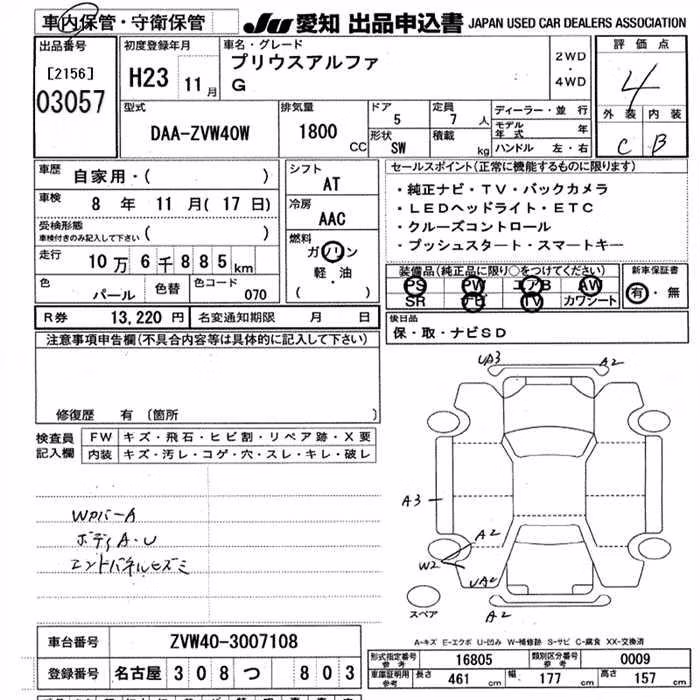 車内保管・守衛保管
JU 愛知 出品申込書 JAPAN USED CAR DEALERS ASSOCIATION
出品番号
[2156]
03057
初度登録年月
H23 11月
車名・グレード
プリウスアルファ
G
2WD
・
4WD
評価点
4
外装 内装
C B
型式
DAA-ZVW40W
排気量
1800 CC
ドア 5
定員 7 人
形状 SW
積載 kg
ディーラー・並行
モデル年式 年
ハンドル 左・右
車歴
自家用・( )
車検
8 年 11 月(17 日)
受検形態
車検付きのみ記入して下さい ( )
走行
10万 6千 885 km
色
パール
色替
色コード
070
シフト
AT
冷房
AAC
燃料
ガソリン
軽・油
( )
セールスポイント(正常に機能するものに限ります)
・純正ナビ・TV・バックカメラ
・LEDヘッドライト・ETC
・クルーズコントロール
・プッシュスタート・スマートキー
装備品(純正品に限り○をつけてください)
PS PW エアB AW
SR ナビ TV カワシート
新車保証書
有・無
R券 13,220 円
名変通知期限 月 日
後日品
保・取・ナビSD
注意事項申告欄(不具合内容等は具体的に記入して下さい)
修復歴 有 (箇所
検査員記入欄
FW キズ・飛石・ヒビ割・リペア跡・X要
内装 キズ・汚レ・コゲ・穴・スレ・キレ・破レ
WPバーA
ボディA・U
エンドパネルヒズミ
UA3
A2
A3
A2
W2
UA2
A2
スペア
A-キズ E-エクボ U-凹み W-補修跡 S-サビ C-腐食 XX-交換済
車台番号 ZVW40-3007108
登録番号 名古屋 308 つ 803
形式指定番号 参考 16805
類別区分番号 参考 0009
車庫証明用 参考 長さ 461 cm 幅 177 cm 高さ 157 cm